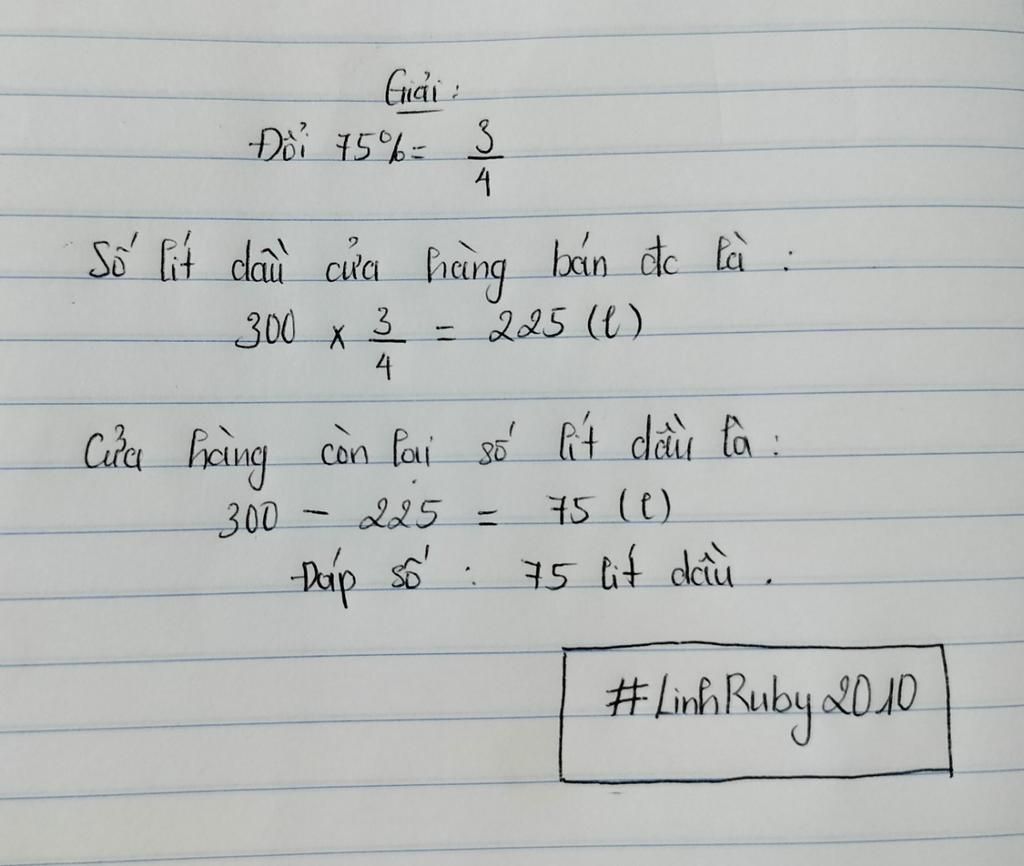 Giải:
Đổi 75% = 3/4
Số lít dầu cửa hàng bán đc là :
300 x 3/4 = 225 (l)
Cửa hàng còn lại số lít dầu là :
300 - 225 = 75 (l)
Đáp số : 75 lít dầu .
#LinhRuby2010